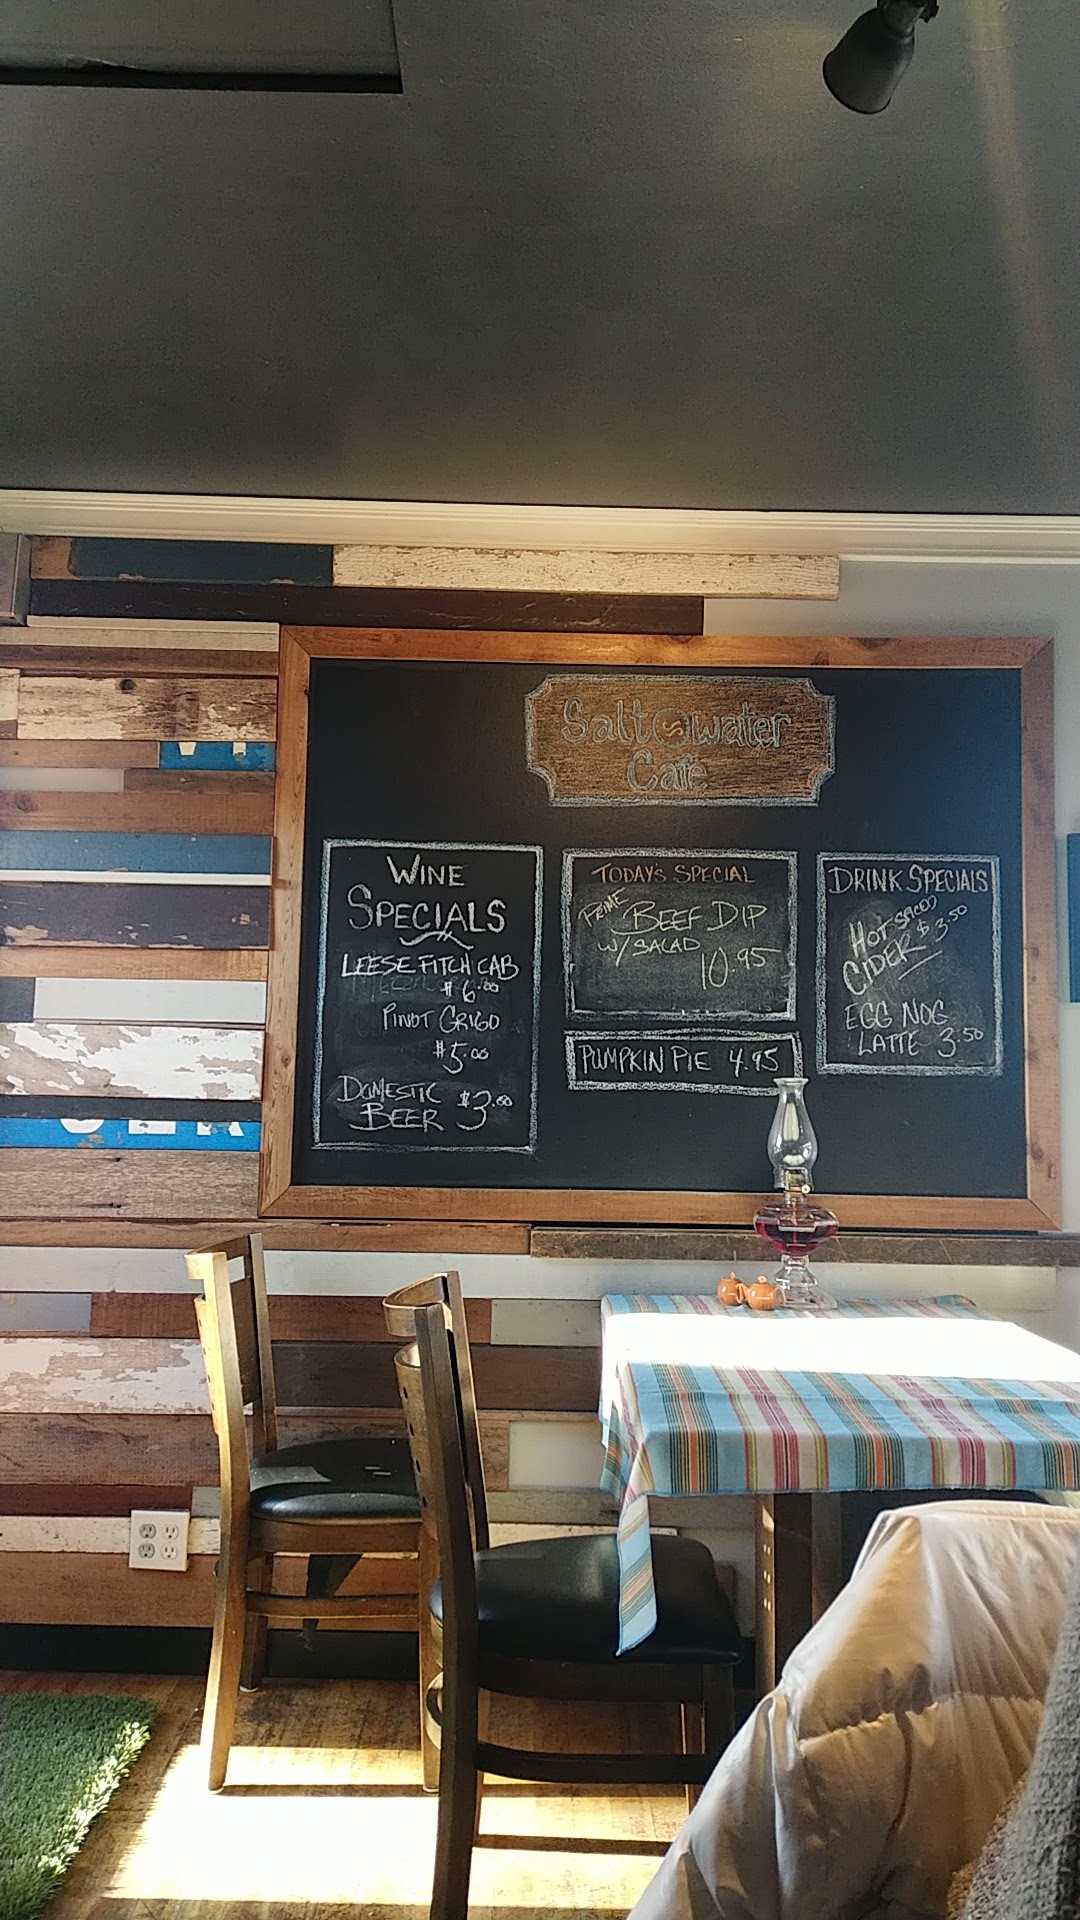 Salt water
Cafe
WINE
SPECIALS
LEESE FITCH CAB
$6.00
PINOT GRIGO
$5.00
DOMESTIC
BEER $3.00
TODAY'S SPECIAL
PRIME BEEF DIP
W/ SALAD
10.95
PUMPKIN PIE 4.95
DRINK SPECIALS
HOT SPICED
CIDER $3.50
EGG NOG
LATTE 3.50